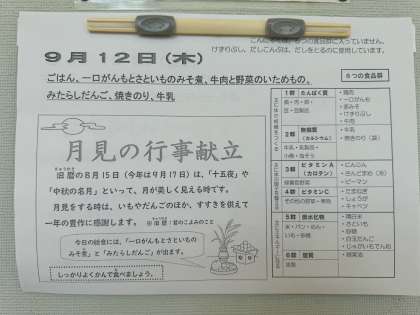 こんにゃくは、6つの食品群に入っていません。
けずりぶし、だしこんぶは、だしをとるのに使用しています。
9月12日(木)
ごはん、一口がんもとさといものみそ煮、牛肉と野菜のいためもの、
みたらしだんご、焼きのり、牛乳
6つの食品群
月見の行事献立
旧暦の8月15日(今年は9月17日)は、「十五夜」や
「中秋の名月」といって、月が美しく見える時です。
月見をする時は、いもやだんごのほか、すすきを供えて
一年の豊作に感謝します。
今日の給食には、「一口がんもとさといもの
みそ煮」と「みたらしだんご」が出ます。
しっかりよくかんで食べましょう。
1群 たんぱく質
魚・肉・卵・
豆・豆製品
・鶏肉
・一口がんも
・赤みそ
・けずりぶし
・牛肉
2群 無機質
(カルシウム)
牛乳・乳製品・
小魚・海そう
・牛乳
・焼きのり
3群 ビタミンA
(カロテン)
緑黄色野菜
・にんじん
・さんどまめ(冷)
・ピーマン
4群 ビタミンC
その他の野菜・果物
・たまねぎ
・しょうが
・キャベツ
5群 炭水化物
米・パン・めん・
いも・砂糖
・精白米
・さといも
・砂糖
・白玉だんご
・じゃがいもでんぷん
6群 脂質
油脂
・綿実油